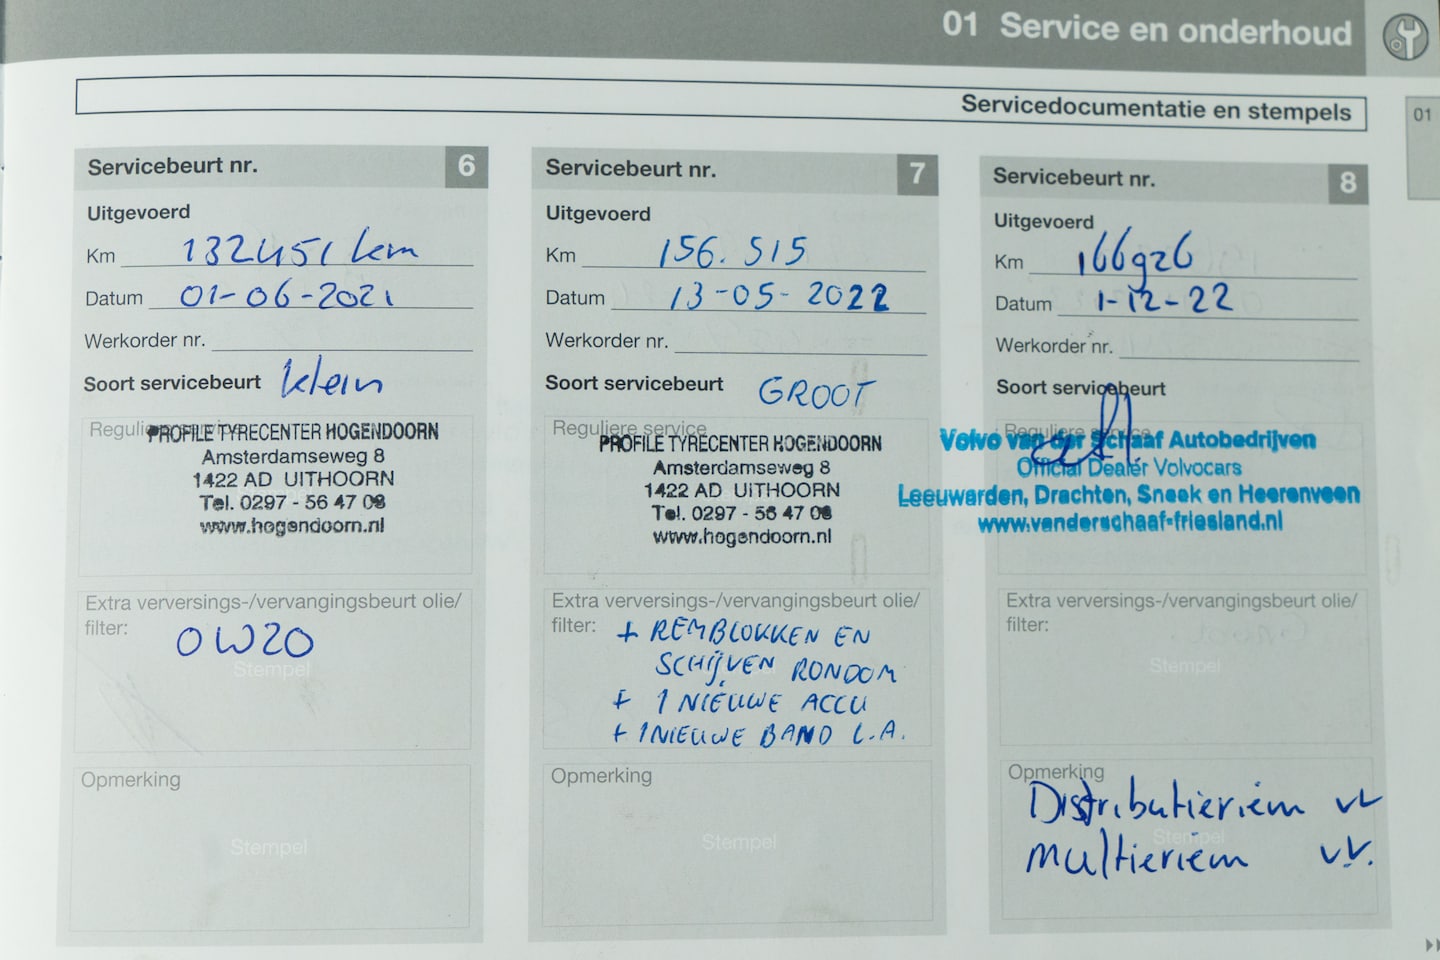 01 Service en onderhoud
Servicedocumentatie en stempels
01
Servicebeurt nr. 6
Uitgevoerd
Km 132451 km
Datum 01-06-2021
Werkorder nr.
Soort servicebeurt klein
Reguliere service
PROFILE TYRECENTER HOGENDOORN
Amsterdamseweg 8
1422 AD UITHOORN
Tel. 0297 - 56 47 08
www.hogendoorn.nl
Extra verversings-/vervangingsbeurt olie/
filter: 0W20
Stempel
Opmerking
Stempel
Servicebeurt nr. 7
Uitgevoerd
Km 156.515
Datum 13-05-2022
Werkorder nr.
Soort servicebeurt GROOT
Reguliere service
PROFILE TYRECENTER HOGENDOORN
Amsterdamseweg 8
1422 AD UITHOORN
Tel. 0297 - 56 47 08
www.hogendoorn.nl
Extra verversings-/vervangingsbeurt olie/
filter: + REMBLOKKEN EN
SCHIJVEN RONDOM
+ 1 NIEUWE ACCU
+ 1 NIEUWE BAND L.A.
Opmerking
Stempel
Servicebeurt nr. 8
Uitgevoerd
Km 166926
Datum 1-12-22
Werkorder nr.
Soort servicebeurt
Reguliere service
Volvo van der Schaaf Autobedrijven
Official Dealer Volvocars
Leeuwarden, Drachten, Sneek en Heerenveen
www.vanderschaaf-friesland.nl
Extra verversings-/vervangingsbeurt olie/
filter:
Stempel
Opmerking
Distributieriem vv
Stempel
multieriem v.v.